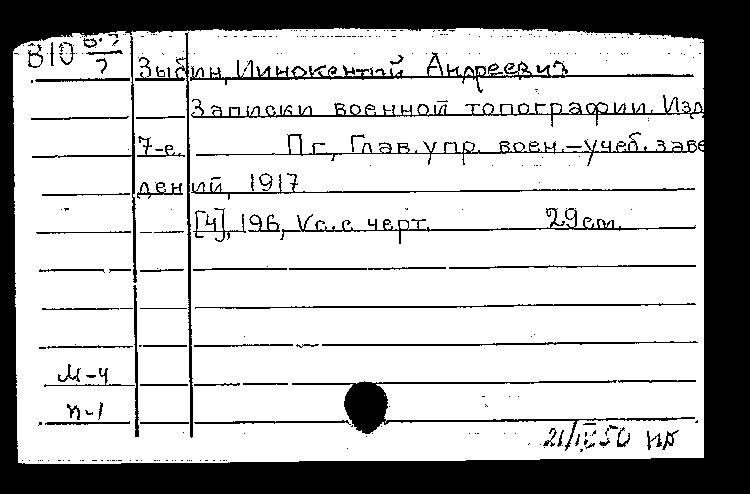 В10 6.?/?
Зыбин, Иннокентий Андреевиз
Записки военной топографии. Изд
7-е. Пг., Глав. упр. воен.-учеб. заве
дений, 1917
[4], 196, Vс. с черт. 29 cm.
М-4
п-1
21/IV 50